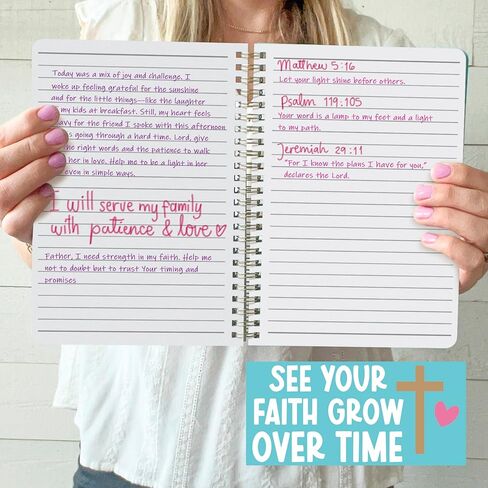 Today was a mix of joy and challenge. I
woke up feeling grateful for the sunshine
and for the little things—like the laughter
my kids at breakfast. Still, my heart feels
avy for the friend I spoke with this afternoon
as going through a hard time. Lord, give
the right words and the patience to walk
her in love. Help me to be a light in her
even in simple ways.
I will serve my family
with patience & love ♡
Father, I need strength in my faith. Help me
not to doubt but to trust Your timing and
promises
Matthew 5:16
Let your light shine before others.
Psalm 119:105
Your word is a lamp to my feet and a light
to my path.
Jeremiah 29:11
"For I know the plans I have for you,"
declares the Lord.
SEE YOUR
FAITH GROW
OVER TIME